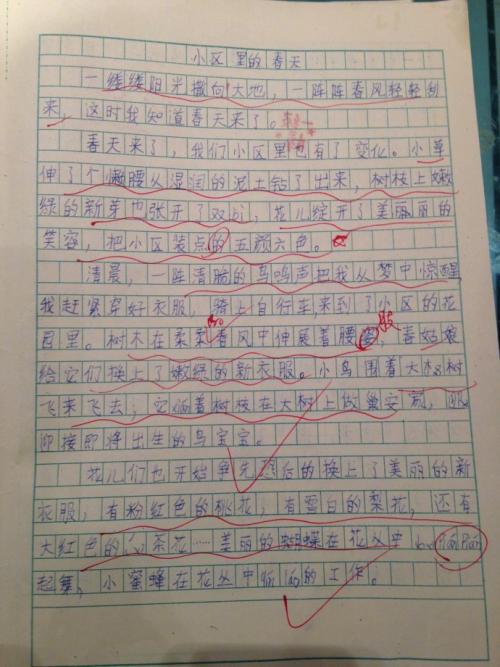 小区里的春天
一缕缕阳光撒向大地，一阵阵春风轻轻刮
来，这时我知道春天来了。
春天来了，我们小区里也有了变化。小草
伸了个懒腰从湿润的泥土钻了出来，树枝上嫩
绿的新芽也张开了双bì，花儿绽开了美丽的
笑容，把小区装点的五颜六色。
清晨，一阵清脆的鸟鸣声把我从梦中惊醒
我赶紧穿好衣服，骑上自行车，来到了小区的花
园里。树木在柔柔春风中伸展着腰，春姑娘
给它们换上了嫩绿的新衣服。小鸟围着大树
飞来飞去，它们着树枝在大树上做安，
迎接即将出生的鸟宝宝。
花儿们也开始争先恐后的换上了美丽的新
衣服，有粉红色的桃花，有雪白的梨花，还有
大红色的茶花……美丽的蝴蝶在花丛中
起舞，小蜜蜂在花丛中的工作。